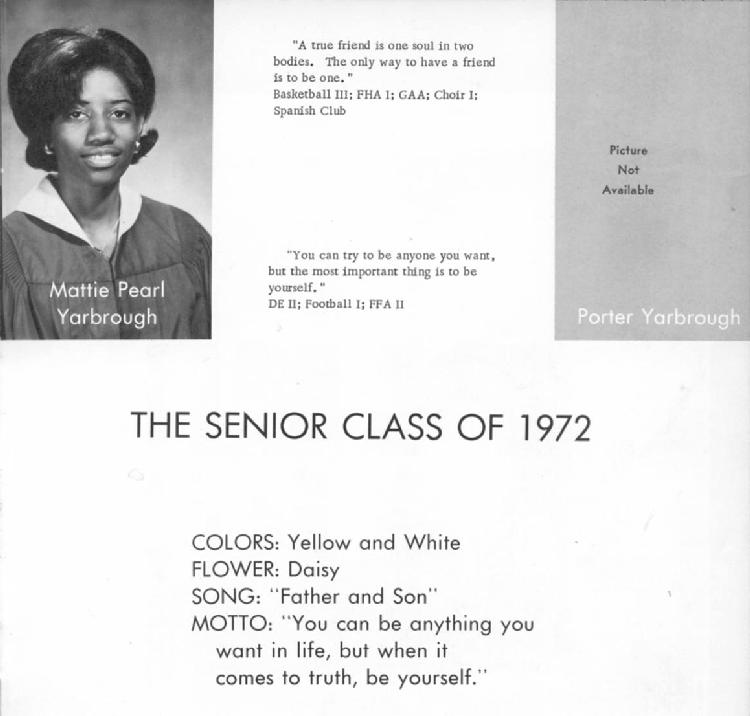 Mattie Pearl
Yarbrough
"A true friend is one soul in two
bodies. The only way to have a friend
is to be one."
Basketball III; FHA I; GAA; Choir I;
Spanish Club
"You can try to be anyone you want,
but the most important thing is to be
yourself."
DE II; Football I; FFA II
Picture
Not
Available
Porter Yarbrough
THE SENIOR CLASS OF 1972
COLORS: Yellow and White
FLOWER: Daisy
SONG: "Father and Son"
MOTTO: "You can be anything you
want in life, but when it
comes to truth, be yourself."